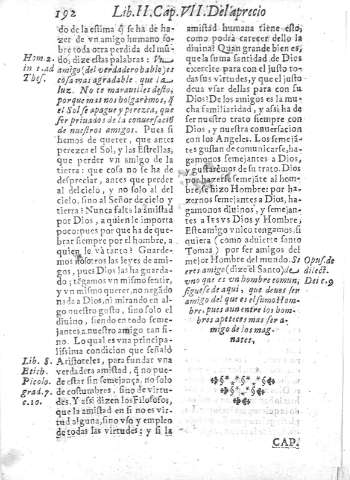 192 Lib. II. Cap. VII. Del aprecio
do de la estima q̃ se ha de ha-
zer de vn amigo humano so-
bre toda otra perdida del mũ-
do, dize estas palabras: Vn
amigo (del verdadero hablo) es
cosa mas agradable que la
luz. No te marauilles desto,
porque mas nos holgarèmos, q̃
el Sol se apague y perezca, que
ser priuados de la conuersaciõ
de nuestros amigos. Pues si
hemos de querer, que antes
perezca el Sol, y las Estrellas,
que perder vn amigo de la
tierra; que cosa no le ha de
despreciar, antes que perder
al del cielo, y no solo al del
cielo, sino al Señor de cielo y
tierra? Nunca falte la amistad
por Dios, a quien le importa
poco; pues por que ha de que-
brar siempre por el hombre, a
quien le và tanto? Guarde-
mos nosotros las leyes de ami-
gos, pues Dios las ha guarda-
do; tẽgamos vn mismo sentir,
y vn mismo querer, no negãdo
nada a Dios, ni mirando en al-
go nuestro gusto, sino solo el
diuino, siendo en todo seme-
jantes a nuestro amigo tan fi-
no. Lo qual es vna principa-
lissima condicion que señalò
Aristoteles, para fundar vna
verdadera amistad, q̃ no pue-
de estar sin semejança, no solo
de costumbres, sino de virtu-
des. Y assi dizen los Filosofos,
que la amistad en si no es vir-
tud alguna, sino vso y empleo
de todas las virtudes; y si la
Hom. 2.
in 1. ad
Thes.
Lib. 8.
Etich.
Picolo.
grad. 7.
c. 10.
amistad humana tiene esto,
como podrà carecer dello la
diuina? Quan grande bien es,
que la suma santidad de Dios
exercite para con el justo to-
das sus virtudes, y que el justo
deua vsar dellas para con su
Dios? De los amigos es la mu-
cha familiaridad, y assi ha de
ser nuestro trato siempre con
Dios, y nuestra conuersacion
con los Angeles. Los semejã-
tes gustan de comunicarse, ha-
gamonos semejantes a Dios,
y gustarèmos de su trato. Dios
por hazerse semejãte al hom-
bre, se hizo Hombre: por ha-
zernos semejantes a Dios, ha-
gamonos diuinos, y semejan-
tes a Iesvs Dios y Hombre,
Este amigo vnico tengamos, si
quiera (como aduierte santo
Tomas) por ser amigos del
mejor Hombre del mundo. Si
eres amigo (dize el Santo) de
vno que es vn hombre comun,
siguese de aqui, que deues ser
amigo del que es el sumo Hom-
bre, pues aun entre los hom-
bres apetecer mas ser a-
migo de los mag-
nates.
Opus. de
dilect.
Dei c. 9
CAP.